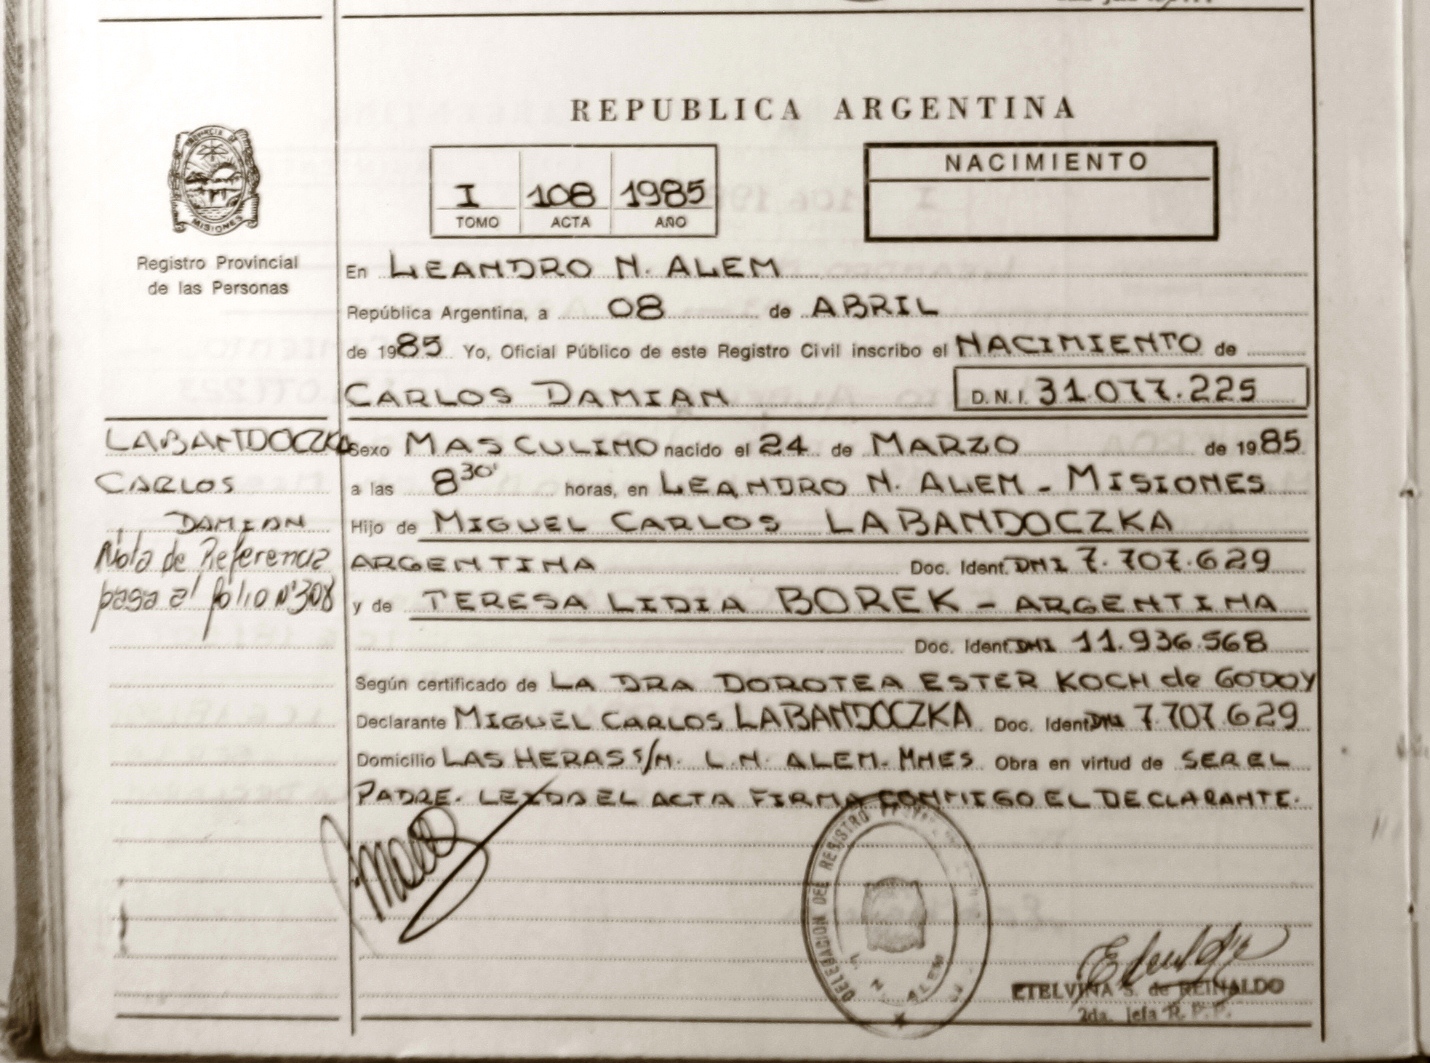 REPUBLICA ARGENTINA
PROVINCIA DE
MISIONES
Registro Provincial
de las Personas
I 108 1985
TOMO ACTA AÑO
NACIMIENTO
En LEANDRO N. ALEM
República Argentina, a 08 de ABRIL
de 1985 Yo, Oficial Público de este Registro Civil inscribo el NACIMIENTO de
CARLOS DAMIAN D.N.I. 31.077.225
LABANDOCZKA
CARLOS
DAMIAN
Nota de Referencia
pasa al folio Nº 308
Sexo MASCULINO nacido el 24 de MARZO de 1985
a las 8 30' horas, en LEANDRO N. ALEM - MISIONES
Hijo de MIGUEL CARLOS LABANDOCZKA
ARGENTINA Doc. Ident. DNI 7.707.629
y de TERESA LIDIA BOREK - ARGENTINA
Doc. Ident. DNI 11.936.568
Según certificado de LA DRA DOROTEA ESTER KOCH de GODOY
Declarante MIGUEL CARLOS LABANDOCZKA Doc. Ident. DNI 7.707.629
Domicilio LAS HERAS S/N. L.N. ALEM. MNES Obra en virtud de SER EL
PADRE. LEIDA EL ACTA FIRMA CONMIGO EL DECLARANTE.
DELEGACION DEL REGISTRO
L. N. ALEM
ETELVINA S. de REINALDO
2da. Jefa R. P. P.